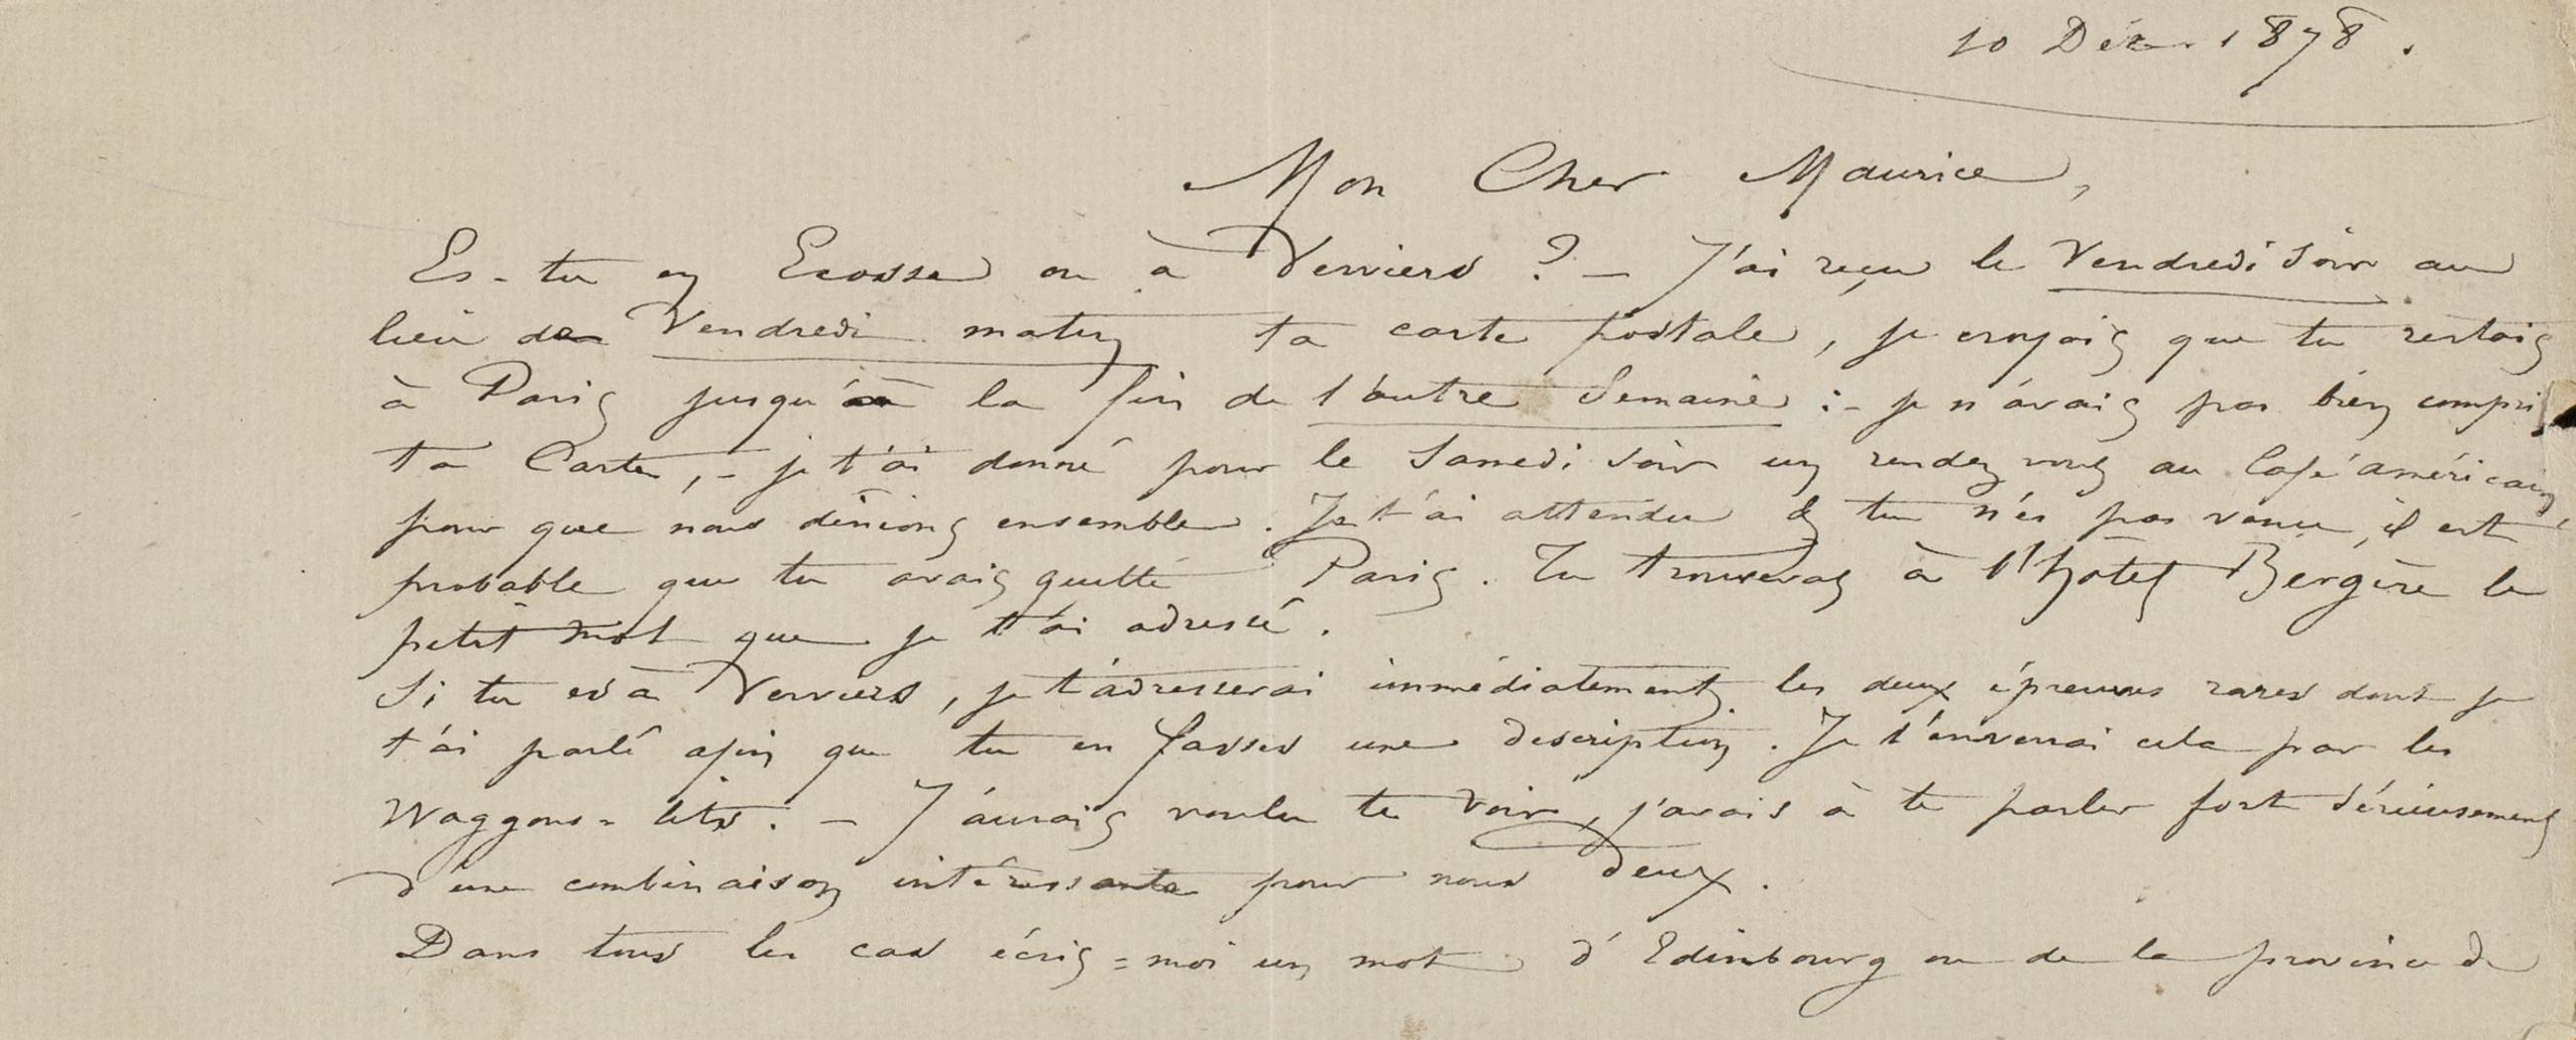 10 Déc. 1878.
Mon Cher Maurice,
Es-tu en Ecosse ou à Verviers ? — J'ai reçu le Vendredi Soir au
lieu de Vendredi matin ta carte postale, je croyais que tu restais
à Paris jusqu'à la fin de l'autre Semaine :- je n'avais pas bien compris
ta Carte, - je t'ai donné pour le Samedi soir un rendez vous au Café américain,
pour que nous dinions ensemble. Je t'ai attendu & tu n'es pas venu, il est
probable que tu avais quitté Paris. Tu trouveras à l'hôtel Bergère le
petit mot que je t'ai adressé.
Si tu es à Verviers, je t'adresserai immédiatement les deux épreuves rares dont je
t'ai parlé afin que tu en fasses une description. Je t'enverrai cela par les
Waggons=lits. — J'aurais voulu te voir, j'avais à te parler fort sérieusement
d'une combinaison intéressante pour nous deux.
Dans tous les cas écris=moi un mot d'Edinbourg ou de la province de